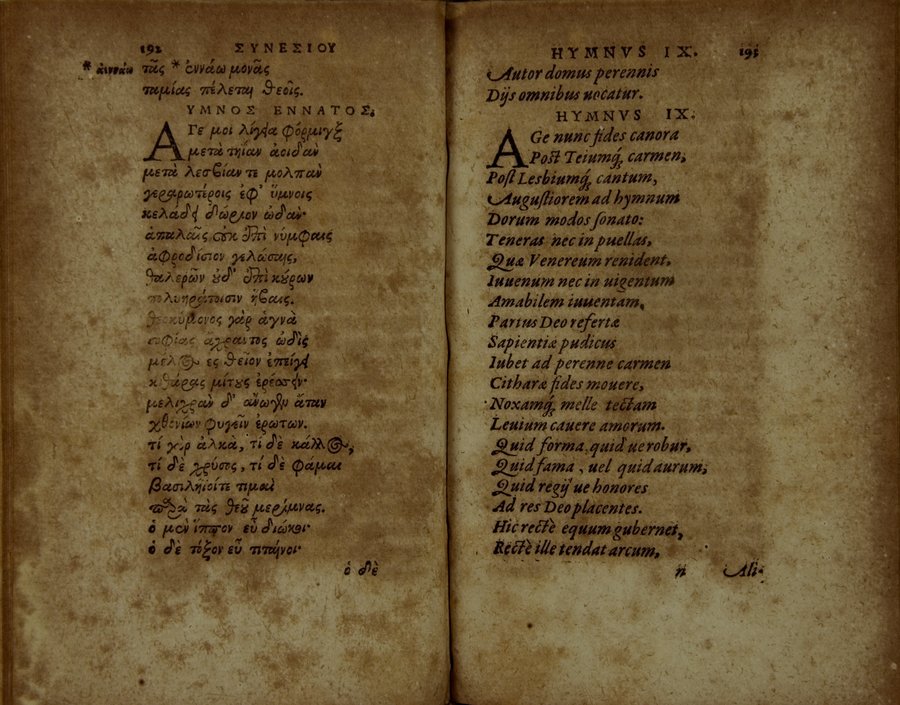 192 ΣΥΝΕΣΙΟΥ
* ἀιννάω τᾶς * ἐννάω μονᾶς
ταμίας πέλεται θεοῖς.
ΥΜΝΟΣ ΕΝΝΑΤΟΣ.
ΑΓΕ μοι λίγεια φόρμιγξ
μετὰ τηΐαν ἀοιδὰν
μετὰ λεσβίαν τε μολπὰν
γεραρωτέροις ἐφ' ὕμνοις
κελάδει δώριον ὠδάν·
ἁπαλαῖς οὐκ ἐπὶ νύμφαις
ἀφροδίσιον γελώσαις,
θαλερῶν οὐδ' ἐπὶ κούρων
πολυηράτοισιν ἥβαις.
θεοκύμονος γὰρ ἁγνὰ
σοφίας ἄχραντος ὠδὶς
μέλος ἐς θεῖον ἐπείγει
κιθάρας μίτους ἐρέσσειν·
μελιχρὰν δ' ἄνωγεν ἄταν
χθονίων φυγεῖν ἐρώτων.
τί γὰρ ἀλκὰ, τί δὲ κάλλος,
τί δὲ χρύσος, τί δὲ φάμαι
βασιλήϊοί τε τιμαὶ
παρὰ τὰς θεοῦ μερίμνας.
ὁ μὲν ἵππον εὖ διώκοι·
ὁ δὲ τόξον εὖ τιταίνοι·
ὁ δὲ
HYMNVS IX. 193
Autor domus perennis
Dijs omnibus uocatur.
HYMNVS IX.
AGe nunc fides canora
Post Teiumq́; carmen,
Post Lesbiumq́; cantum,
Augustiorem ad hymnum
Dorum modos sonato:
Teneras nec in puellas,
Quæ Venereum renident,
Iuuenum nec in uigentum
Amabilem iuuentam,
Partus Deo refertæ
Sapientiæ pudicus
Iubet ad perenne carmen
Citharæ fides mouere,
Noxamq́; melle tectam
Leuium cauere amorum.
Quid forma, quid ue robur,
Quid fama, uel quid aurum,
Quid regij ue honores
Ad res Deo placentes.
Hic rectè equum gubernet,
Rectè ille tendat arcum,
n Ali